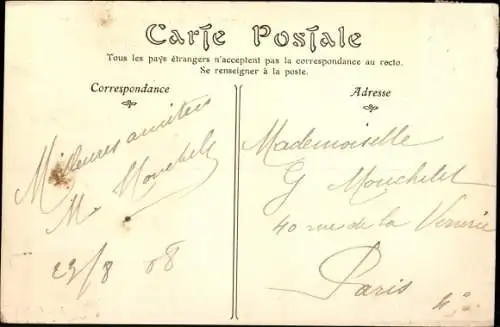 Carte Postale
Tous les pays étrangers n'acceptent pas la correspondance au recto.
Se renseigner à la poste.
Correspondance
Meilleures amitiés
M. Mouchelet
23/8 08
Adresse
Mademoiselle
G Mouchelet
40 rue de la Verrerie
Paris
4e